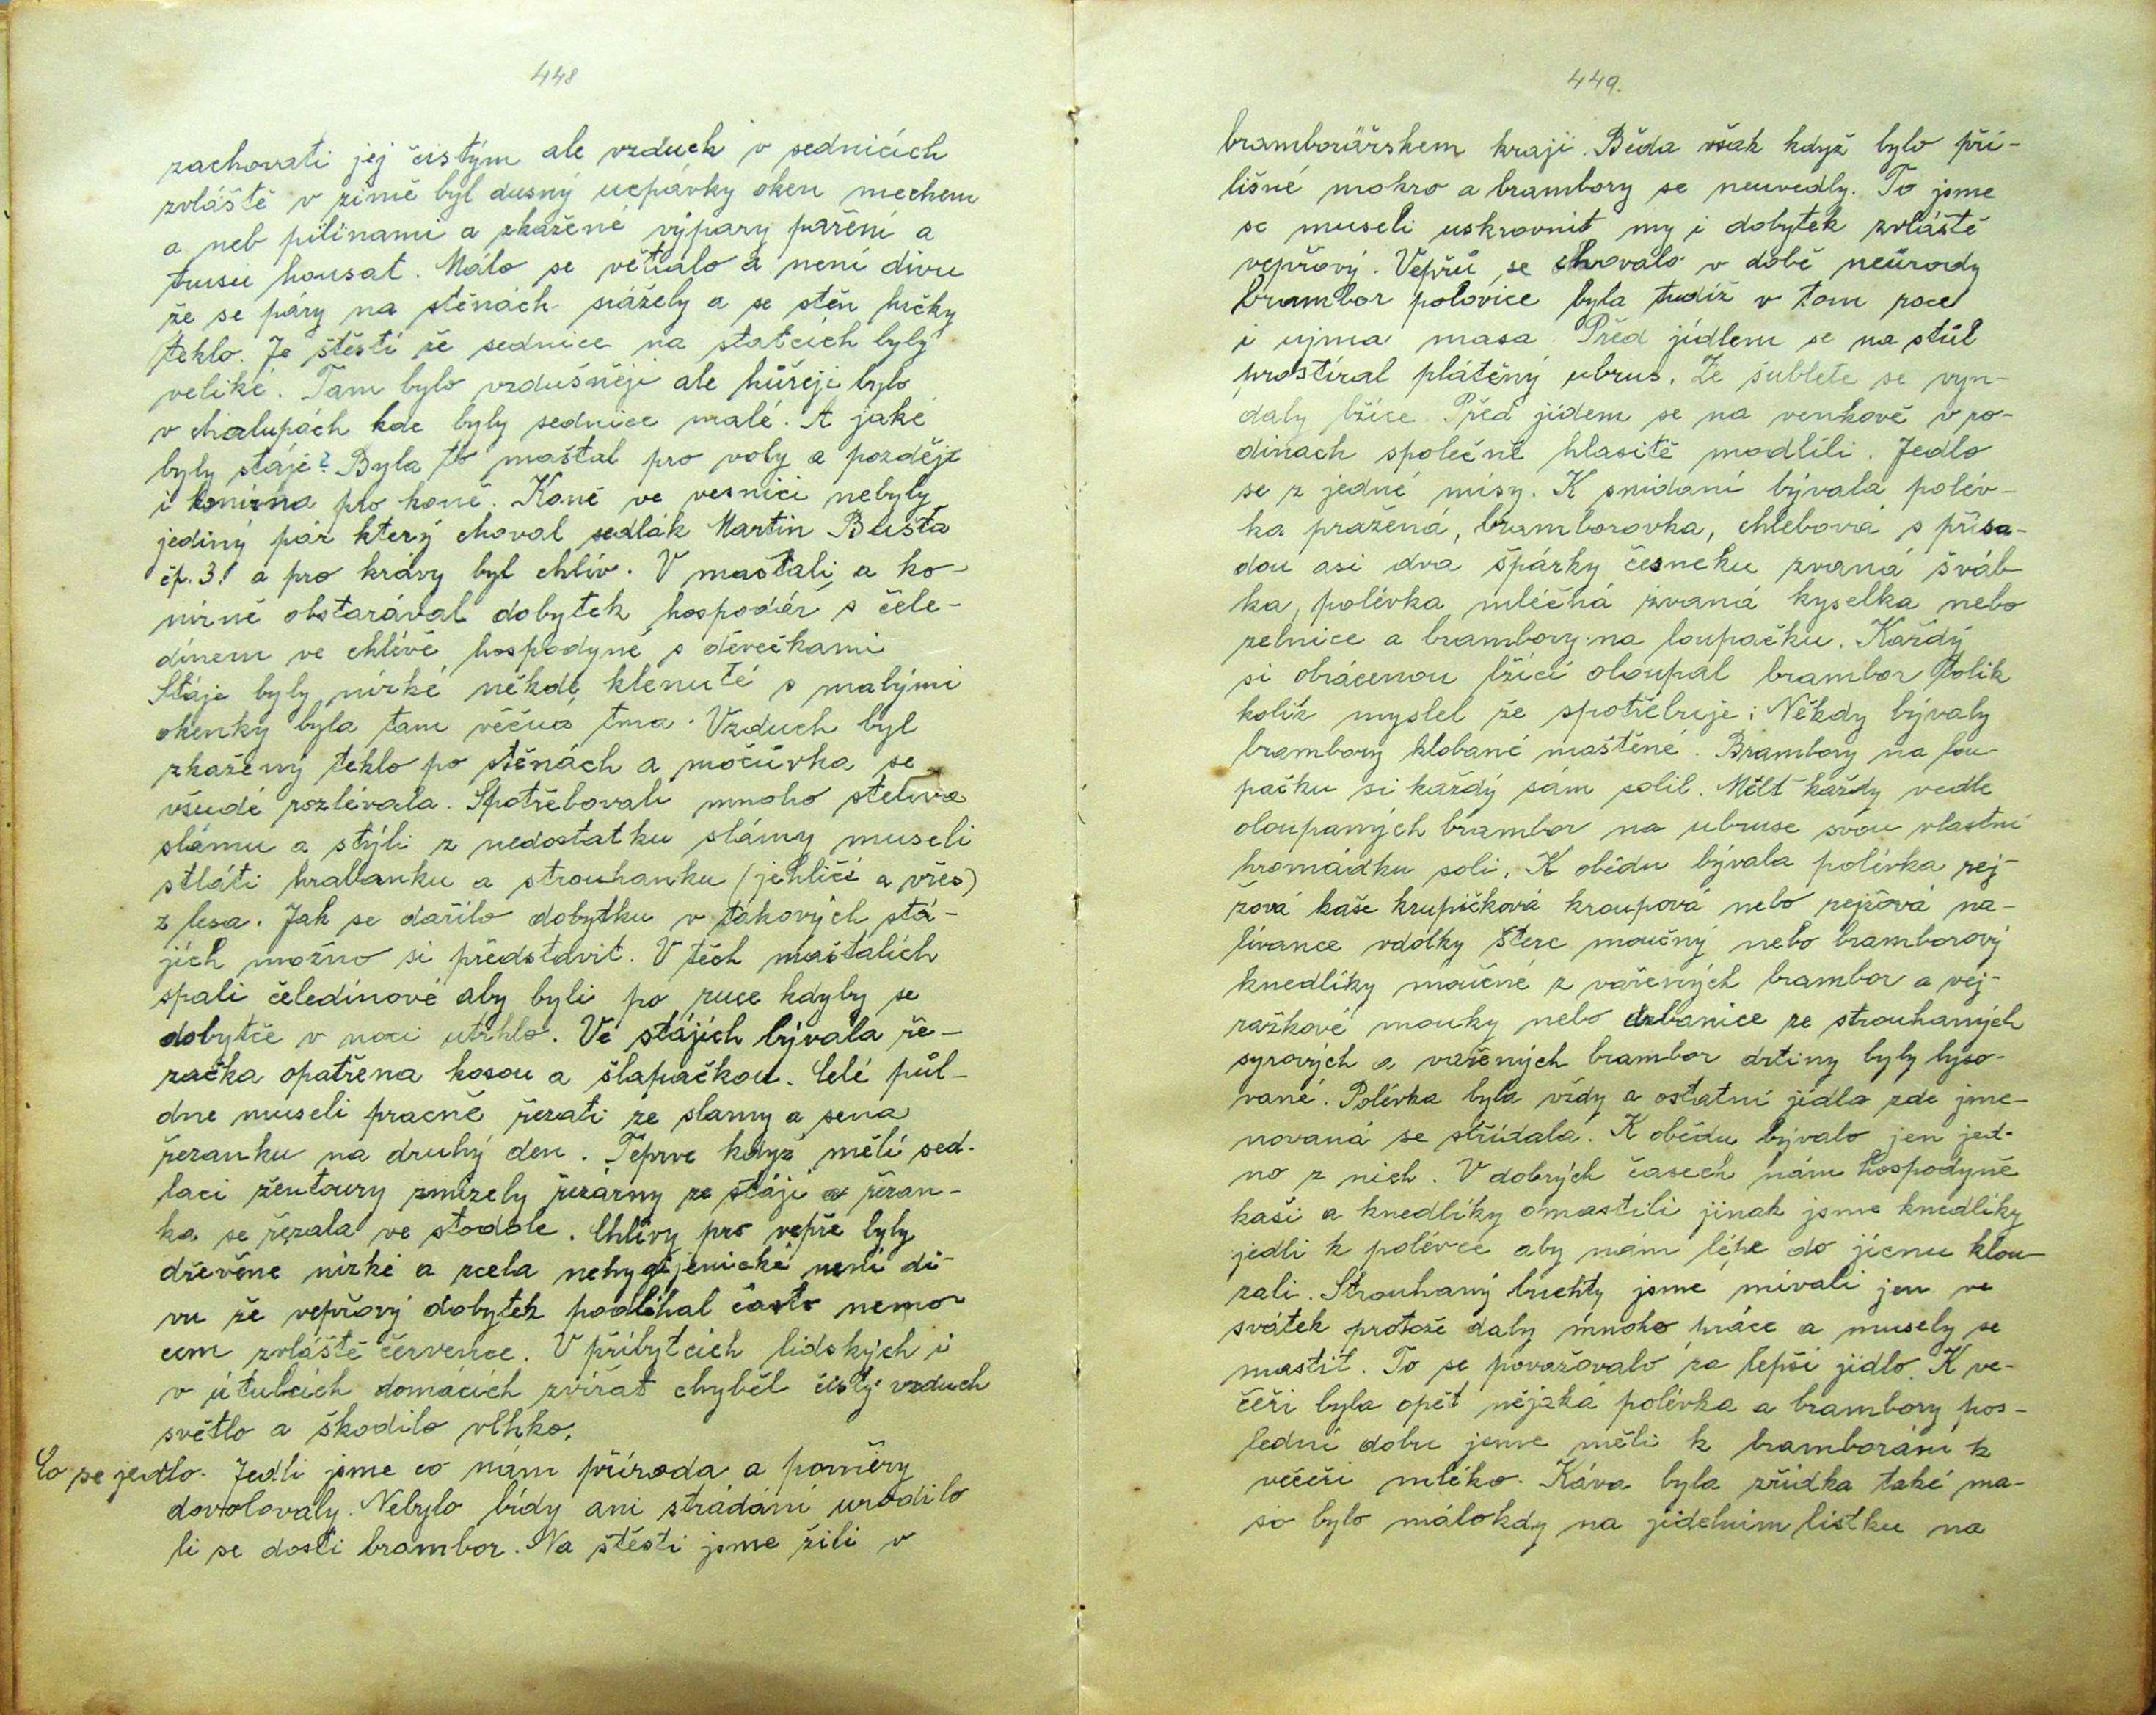 448
zachovati jej čistým ale vzduch v sednicích
zvláště v zimě byl dusný ucpávky oken mechem
a neb pilinami a zkažené výpary paření a
trusu housat. Málo se větralo a není divu
že se páry na stěnách srážely a se stěn hřčky
teklo. Je štěstí že sednice na statcích byly
veliké. Tam bylo vzdušněji ale hůřeji bylo
v chalupách kde byly sednice malé. A jaké
byly stáje? Byla to maštal pro voly a později
i konírna pro koně. Koně ve vesnici nebyly
jediný pár který choval sedlák Martin Bušta
čp. 3! a pro krávy byl chlív. V maštali a ko-
nírně obstarával dobytek hospodář s čele-
dínem ve chlévě hospodyně s děvečkami
Stáje byly nízké někde klenuté s malými
okenky byla tam věčná tma. Vzduch byl
zkažený teklo po stěnách a močůvka se
všude rozlévala. Spotřebovali mnoho steliva
slámu a stýli z nedostatku slámy museli
stláti hrabanku a strouhanku (jehličí a vřes)
z lesa. Jak se dařilo dobytku v takových stá-
jích možno si představit. V těch maštalích
spali čeledínové aby byli po ruce kdyby se
dobytče v noci utrhlo. Ve stájích bývala ře-
začka opatřena kosou a šlapačkou. Celé půl-
dne museli pracně řezati ze slamy a sena
řezanku na druhý den. Teprve když měli sed-
laci žentoury zmizely řezárny ze stájí a řezan-
ka se řezala ve stodole. Chlívy pro vepře byly
dřevěne nízké a zcela nehygijenické není di-
vu že vepřový dobytek podléhal často nemo-
cem zvláště července. V příbytcích lidských i
v útulcích domácích zvířat chyběl čistý vzduch
světlo a škodilo vlhko.
Co se jedlo. Jedli jsme co nám příroda a poměry
dovolovaly. Nebylo bídy ani strádání urodilo
li se dosti brambor. Na štěstí jsme žili v
449.
bramborářském kraji. Běda však když bylo při-
lišné mokro a brambory se neuvedly. To jsme
se museli uskrovnit my i dobytek zvláště
vepřový. Vepřů se chovalo v době neúrody
brambor polovice byla tudíž v tom roce
i ujma masa. Před jídlem se na stůl
prostíral plátěný ubrus. Ze šublete se vyn-
daly lžíce. Před jídem se na venkově v ro-
dinach společně hlasitě modlili. Jedlo
se z jedné mísy. K snídaní bývala polév-
ka pražená, bramborovka, chlebová s přísa-
dou asi dva špárky česneku zvaná šváb-
ka, polévka mléčná zvaná kyselka nebo
zelnice a brambory na loupačku. Každý
si obrácenou lžící oloupal brambor tolik
kolik myslel že spotřebuje: Někdy bývaly
brambory klobané maštěné. Brambory na lou-
pačku si každý sám solil. Mělť každy vedle
oloupaných brambor na ubruse svou vlastní
hromádku soli. K obědu bývala polévka rej-
žová kaše krupičková kroupová nebo rejžová na-
lívance vdolky šterc moučný nebo bramborový
knedlíky moučné z vařených brambor a vej-
ražkové mouky nebo drbanice ze strouhaných
syrových a vařených brambor drtiny byly lyso-
vané. Polévka byla vždy a ostatní jídla zde jme-
novaná se střídala. K obědu bývalo jen jed-
no z nich. V dobrých časech nám hospodyně
kaši a knedlíky omastili jinak jsme knedlíky
jedli k polévce aby nám lépe do jícnu klou-
zali. Strouhaný buchty jsme mívali jen ve
svátek protože daly mnoho práce a musely se
mastit. To se považovalo za lepší jídlo. K ve-
čeři byla opět nějaká polévka a brambory pos-
lední dobu jsme měli k bramborání k
večeři mléko. Káva byla zřídka také ma-
so bylo málokdy na jídelním lístku na